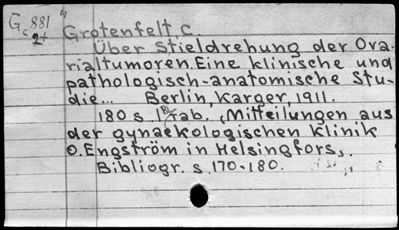 Gc 881
2+
Grotenfelt, C.
Über Stieldrehung der Ova-
rialtumoren. Eine klinische und
pathologisch-anatomische Stu-
die... Berlin, Karger, 1911.
180 s 1 Tab. (Mitteilungen aus
der gynaekologischen Klinik
O. Engström in Helsingfors,
Bibliogr. s. 170-180.